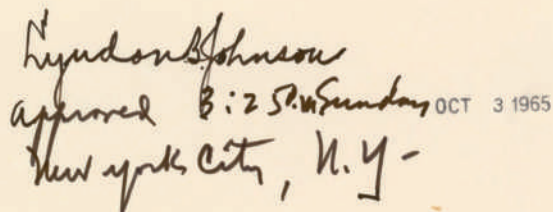 Lyndon B. Johnson
approved 3:25 P.m Sunday OCT 3 1965
New York City, N.Y-